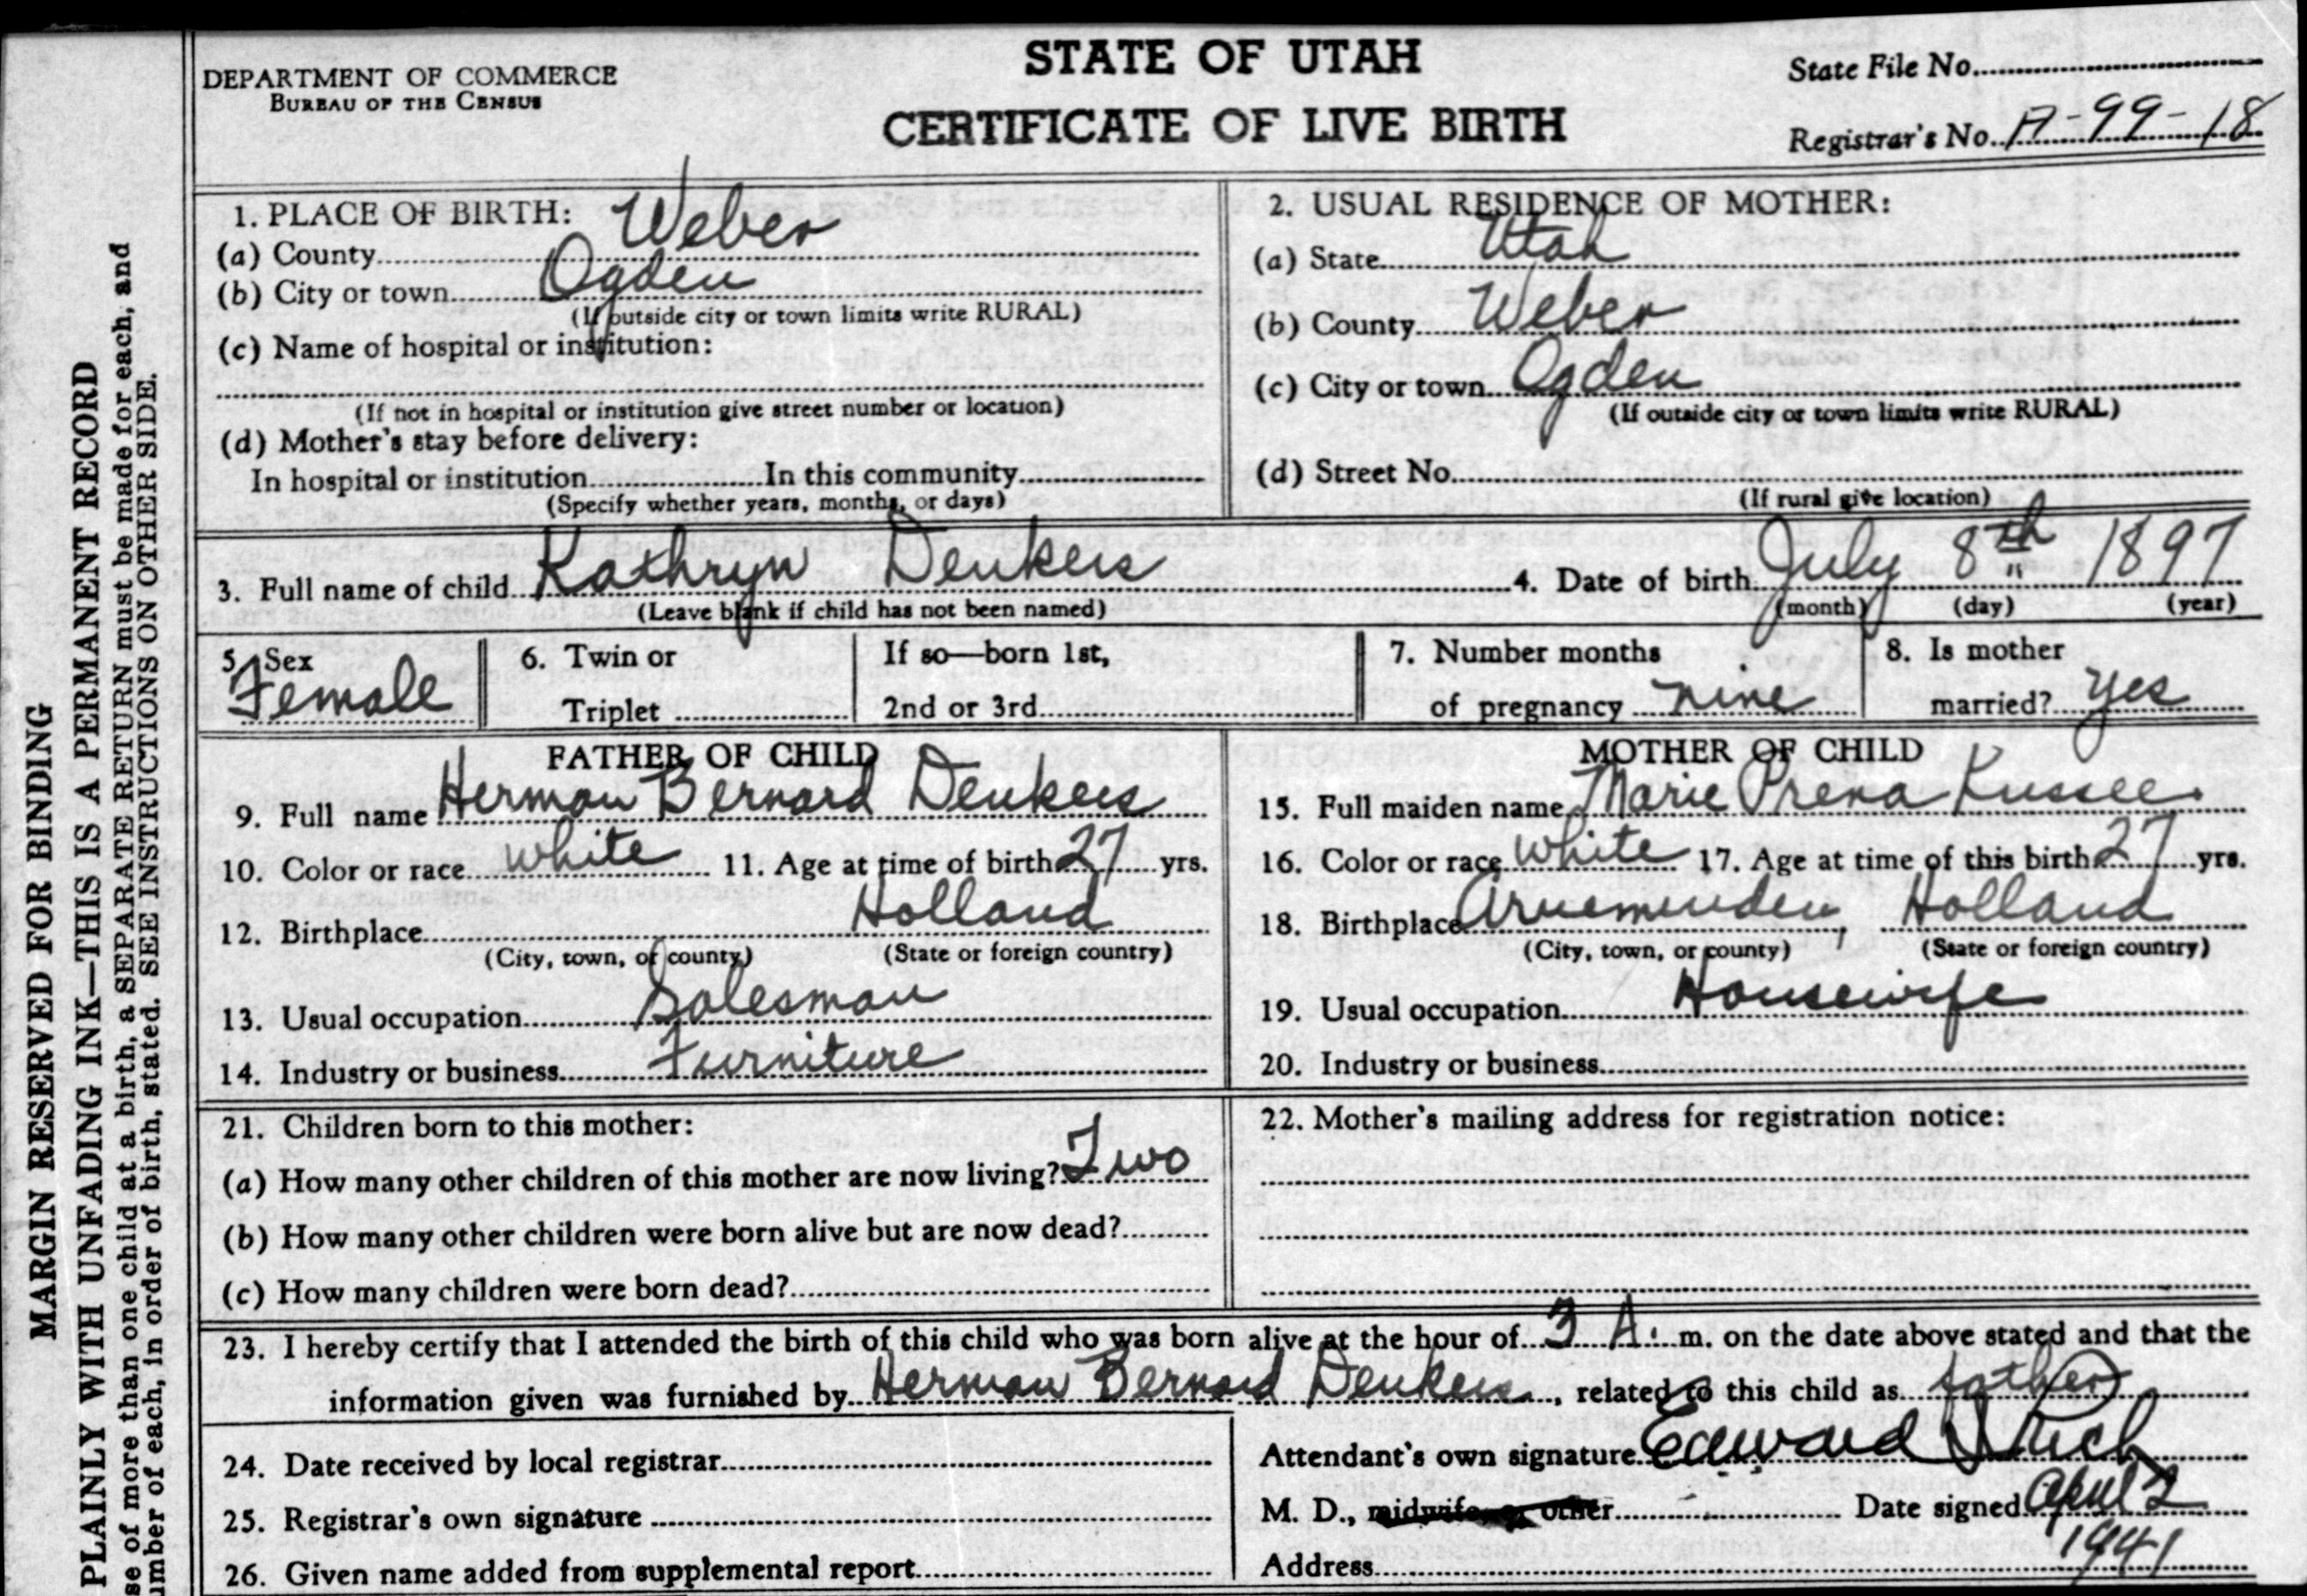 DEPARTMENT OF COMMERCE
BUREAU OF THE CENSUS
STATE OF UTAH
CERTIFICATE OF LIVE BIRTH
State File No.
Registrar's No. A-99-18
MARGIN RESERVED FOR BINDING
PLAINLY WITH UNFADING INK—THIS IS A PERMANENT RECORD
se of more than one child at a birth, a SEPARATE RETURN must be made for each, and
umber of each, in order of birth, stated. SEE INSTRUCTIONS ON OTHER SIDE.
1. PLACE OF BIRTH:
(a) County Weber
(b) City or town Ogden
(If outside city or town limits write RURAL)
(c) Name of hospital or institution:
(If not in hospital or institution give street number or location)
(d) Mother's stay before delivery:
In hospital or institution In this community
(Specify whether years, months, or days)
2. USUAL RESIDENCE OF MOTHER:
(a) State Utah
(b) County Weber
(c) City or town Ogden
(If outside city or town limits write RURAL)
(d) Street No.
(If rural give location)
3. Full name of child Kathryn Denkers 4. Date of birth July 8th 1897
(Leave blank if child has not been named) (month) (day) (year)
5. Sex Female
6. Twin or
Triplet
If so—born 1st,
2nd or 3rd
7. Number months
of pregnancy nine
8. Is mother
married? yes
FATHER OF CHILD
9. Full name Herman Bernard Denkers
10. Color or race white 11. Age at time of birth 27 yrs.
12. Birthplace Holland
(City, town, or county) (State or foreign country)
13. Usual occupation Salesman
14. Industry or business Furniture
MOTHER OF CHILD
15. Full maiden name Marie Prena Kussee
16. Color or race White 17. Age at time of this birth 27 yrs.
18. Birthplace Arnemuiden, Holland
(City, town, or county) (State or foreign country)
19. Usual occupation Housewife
20. Industry or business
21. Children born to this mother:
(a) How many other children of this mother are now living? Two
(b) How many other children were born alive but are now dead?
(c) How many children were born dead?
22. Mother's mailing address for registration notice:
23. I hereby certify that I attended the birth of this child who was born alive at the hour of 3 A. m. on the date above stated and that the
information given was furnished by Herman Bernard Denkers, related to this child as father
24. Date received by local registrar
25. Registrar's own signature
26. Given name added from supplemental report
Attendant's own signature Edward I Rich
M. D., midwife, or other Date signed April 2
1941
Address